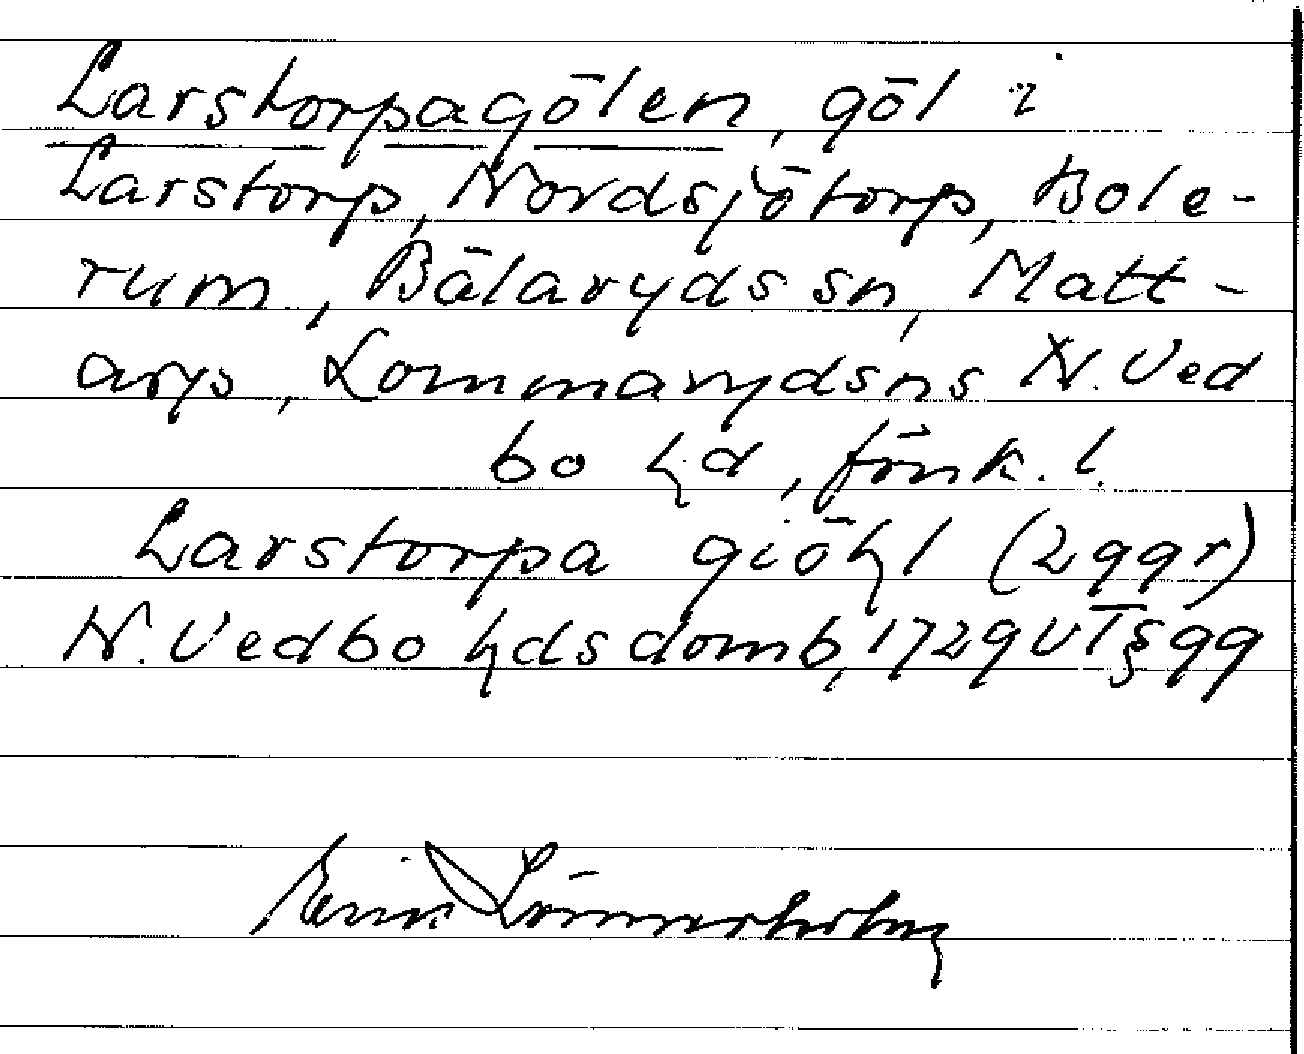 Larstorpagölen, göl i
Larstorp, Nordsjötorp, Bole-
rum, Bälaryds sn, Matt-
arp, Lommaryds sns N. Ved
bo hd, fönk. l.
Larstorpa giöhl (2 ggr)
N. Vedbo hds domb, 1729 VT § 99